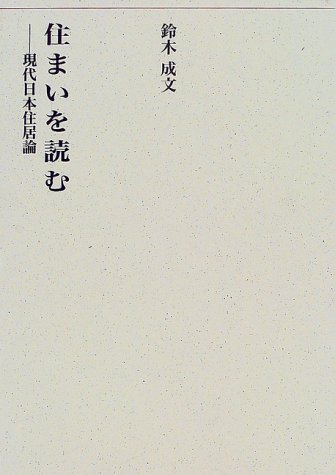 鈴木 成文
住まいを読む
──現代日本住居論